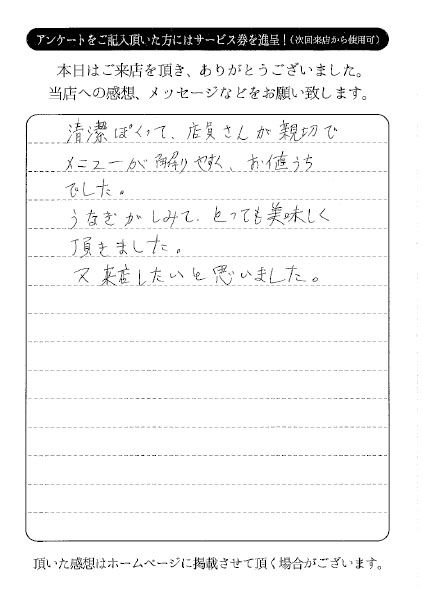 アンケートをご記入頂いた方にはサービス券を進呈！(次回来店から使用可)
本日はご来店を頂き、ありがとうございました。
当店への感想、メッセージなどをお願い致します。
清潔ぽくって、店員さんが親切で
メニューが解りやすく、お値うち
でした。
うなぎがしみて、とっても美味しく
頂きました。
又来店したいと思いました。
頂いた感想はホームページに掲載させて頂く場合がございます。